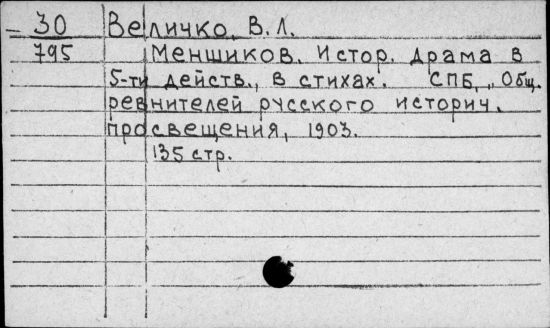 30 Величко, В.Л.
795 Меншиков. Истор. драма в
5-ти действ., в стихах. СПБ, „Общ.
ревнителей русского историч.
просвещения, 1903.
135 стр.